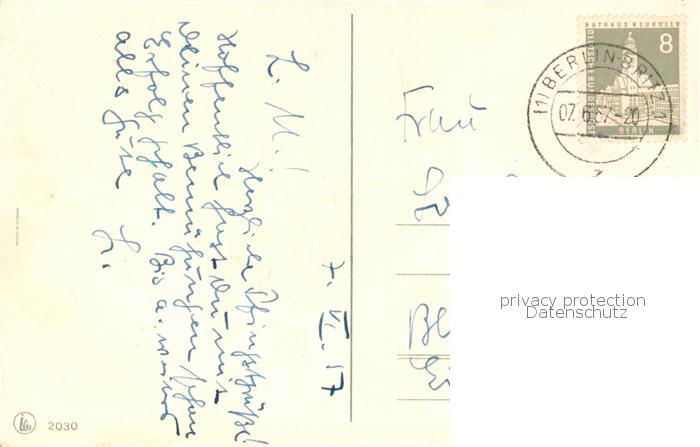 7. VI. 57
L. M.!
Herzliche Pfingstgrüße!
Hoffentlich hast Du mit
Deinen Bemühungen schon
Erfolg gehabt. Bis a.
alles Gute
Frau
RATHAUS NEUKÖLLN
8
DEUTSCHE BUNDESPOST
BERLIN
(1) BERLIN-BRITZ 1
07.6.57-20
privacy protection
Datenschutz
2030